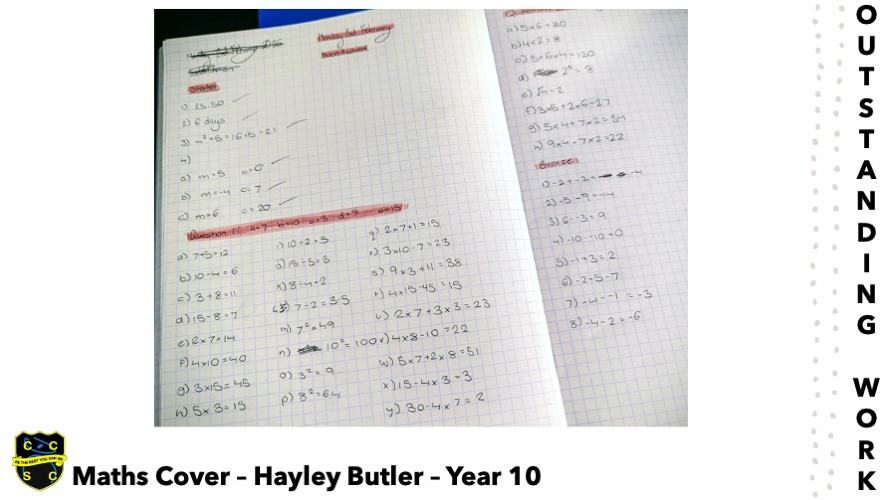 Monday 1st February
Substitution
Starter
1) £5.50
2) 6 days
3) 4² + 5 = 16 + 5 = 21
4)
a) m=5 c=6
b) m=-4 c=7
c) m=6 c=20
Question 1: a=7 b=10 c=3 d=8 e=15
a) 7+5=12
b) 10-4=6
c) 3+8=11
d) 15-8=7
e) 2×7=14
f) 4×10=40
g) 3×15=45
h) 5×3=15
i) 10÷2=5
j) 15÷5=3
k) 8÷4=2
l) 7÷2=3.5
m) 7²=49
n) 10²=100
o) 3²=9
p) 8²=64
q) 2×7+1=15
r) 3×10-7=23
s) 9×3+11=38
t) 4×15-45=15
u) 2×7+3×3=23
v) 4×8-10=22
w) 5×7+2×8=51
x) 15-4×3=3
y) 30-4×7=2
Question 2
a) 5×6=30
b) 4×2=8
c) 5×6×4=120
d) 2³=8
e) √4=2
f) 3×5+2×6=27
g) 5×4+7×2=34
h) 9×4-7×2=22
Bronze
1) -2+-2= -4
2) -5-9=-14
3) 6--3=9
4) -10--10=0
5) -1+3=2
6) -2-5=-7
7) -4--1=-3
8) -4-2=-6
OUTSTANDING WORK
C C
BE THE BEST YOU CAN BE
S C
Maths Cover – Hayley Butler – Year 10